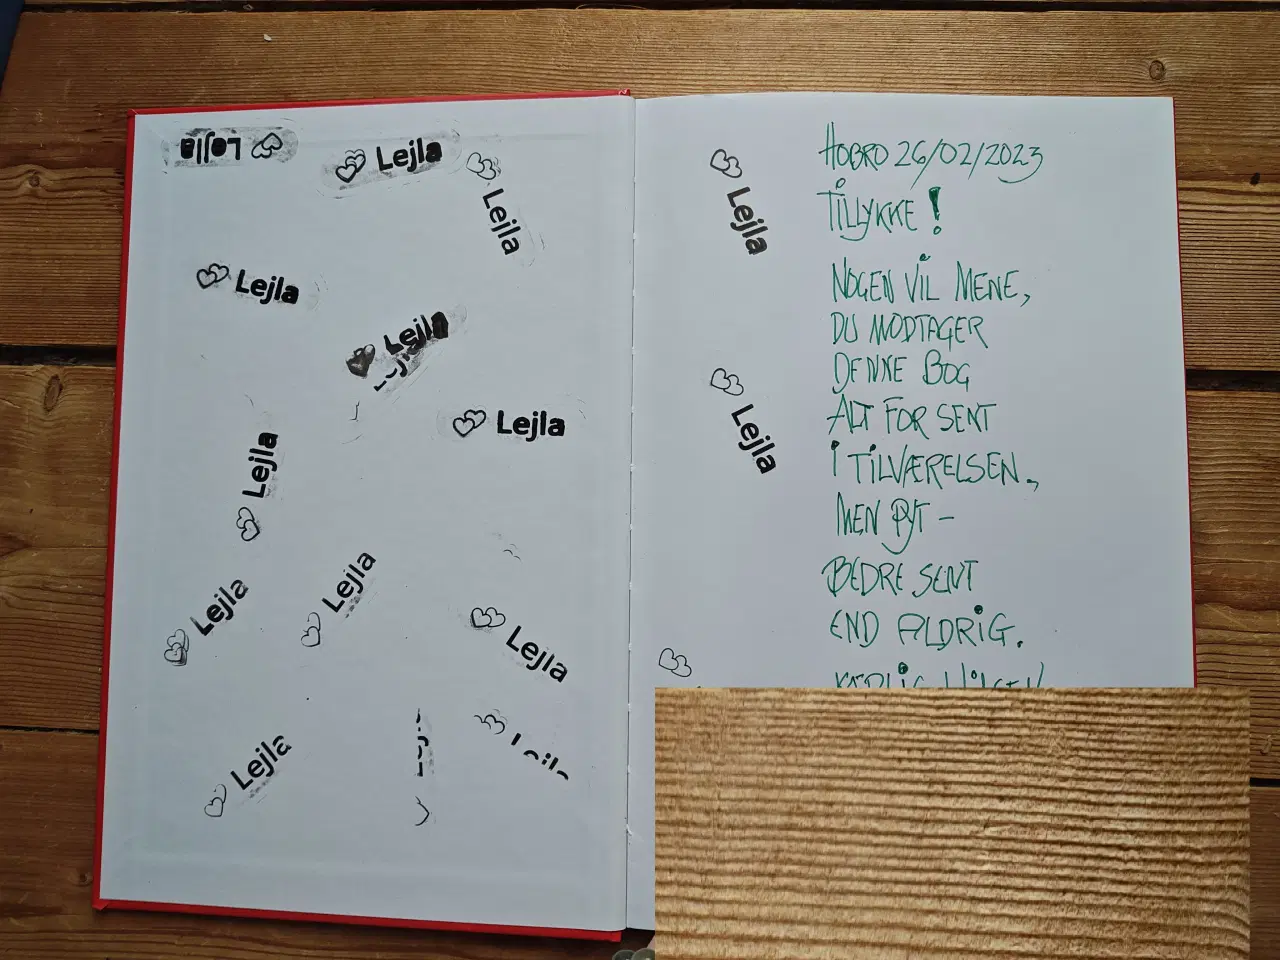 Lejla
Lejla
Lejla
Lejla
Lejla
Lejla
Lejla
Lejla
Lejla
Lejla
Lejla
Lejla
Lejla
Lejla
HOBRO 26/02/2023
TILLYKKE!
NOGEN VIL MENE,
DU MODTAGER
DENNE BOG
ALT FOR SENT
I TILVÆRELSEN.,
MEN PYT –
BEDRE SENT
END ALDRIG.